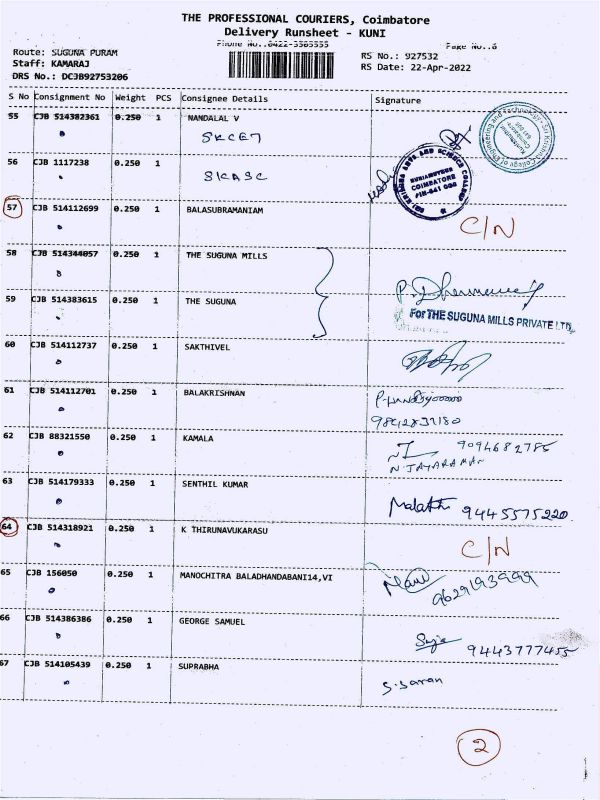 THE PROFESSIONAL COURIERS, Coimbatore
Delivery Runsheet - KUNI
Phone No.:0422-3505555 Page No.:6
Route: SUGUNA PURAM RS No.: 927532
Staff: KAMARAJ RS Date: 22-Apr-2022
DRS No.: DCJB92753206
S No Consignment No Weight PCS Consignee Details Signature
55 CJB 514382361 0.250 1 NANDALAL V
SKCET
56 CJB 1117238 0.250 1
SKASC
SRI KRISHNA ARTS AND SCIENCE COLLEGE
KUNIAMUTHUR
COIMBATORE
PIN-641 008
Sri Krishna College of Engineering and Technology
Kuniamuthur
Coimbatore
57 CJB 514112699 0.250 1 BALASUBRAMANIAM
C/N
58 CJB 514344057 0.250 1 THE SUGUNA MILLS
59 CJB 514383615 0.250 1 THE SUGUNA
For THE SUGUNA MILLS PRIVATE LTD.
60 CJB 514112737 0.250 1 SAKTHIVEL
61 CJB 514112701 0.250 1 BALAKRISHNAN
62 CJB 88321550 0.250 1 KAMALA
9094682785
N.JAYARAMAN
63 CJB 514179333 0.250 1 SENTHIL KUMAR
Malathi 9445575220
64 CJB 514318921 0.250 1 K THIRUNAVUKARASU
C/N
65 CJB 156050 0.250 1 MANOCHITRA BALADHANDABANI14,VI
9629193999
66 CJB 514386386 0.250 1 GEORGE SAMUEL
9443777455
67 CJB 514105439 0.250 1 SUPRABHA
S.Saran
2